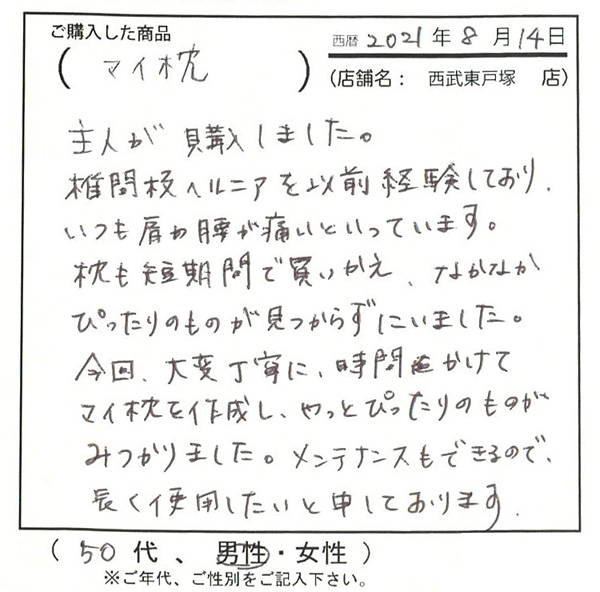 ご購入した商品
西暦 2021年 8月 14日
(マイ枕)
(店舗名： 西武東戸塚 店)
主人が購入しました。
椎間板ヘルニアを以前経験しており、
いつも肩や腰が痛いといっています。
枕も短期間で買いかえ、なかなか
ぴったりのものが見つからずにいました。
今回、大変丁寧に、時間をかけて
マイ枕を作成し、やっとぴったりのものが
みつかりました。メンテナンスもできるので、
長く使用したいと申しております。
(50代、男性・女性)
※ご年代、ご性別をご記入下さい。